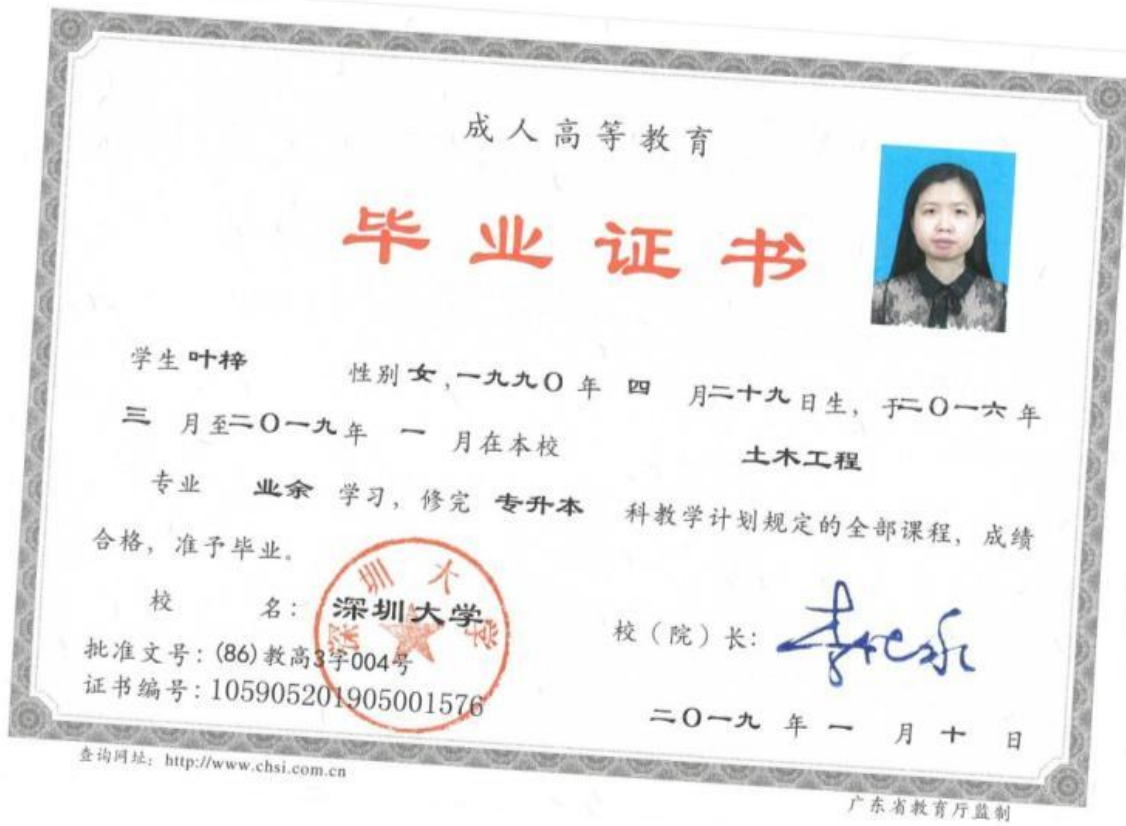 成人高等教育
毕业证书
学生 叶梓 性别 女,一九九〇 年 四 月二十九日生，于二〇一六 年
三 月至二〇一九年 一 月在本校 土木工程
专业 业余 学习，修完 专升本 科教学计划规定的全部课程，成绩
合格，准予毕业。
深圳大学
校 名：深圳大学
校（院）长：
批准文号：(86)教高3字004号
证书编号：105905201905001576
二〇一九 年 一 月 十 日
查询网址：http://www.chsi.com.cn
广东省教育厅监制